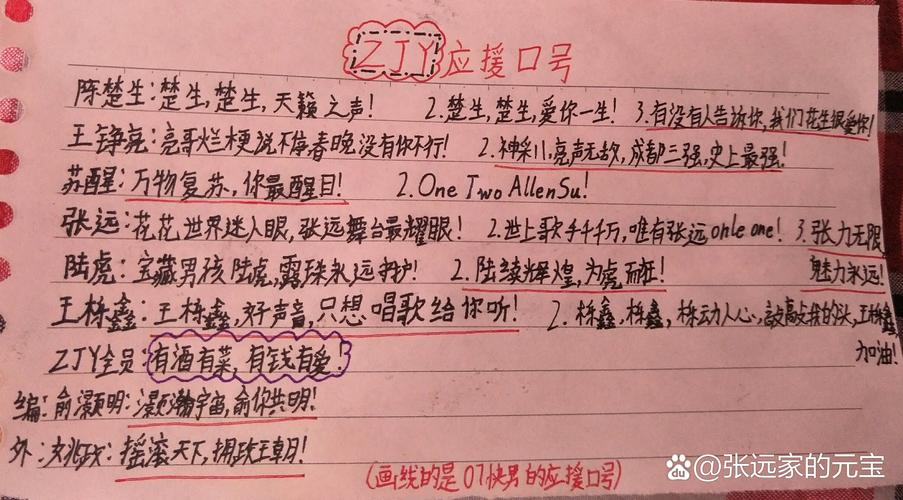 ZJY应援口号
陈楚生:楚生,楚生,天籁之声! 2.楚生,楚生,爱你一生! 3.有没有人告诉你,我们花生很爱你!
王铮亮:亮哥烂梗说不停春晚没有你不行! 2.神采川,亮声无敌,成都三强,史上最强!
苏醒:万物复苏,你最醒目! 2.One Two AllenSu!
张远:花花世界迷人眼,张远舞台最耀眼! 2.世上歌手千千万,唯有张远onle one! 3.张力无限
陆虎:宝藏男孩陆虎,露珠永远守护! 2.陆续辉煌,为虎而狂! 魅力永远!
王栎鑫:王栎鑫,好声音,只想唱歌给你听! 2.栎鑫,栎鑫,栎动人心,敲敲我的头,王栎鑫
加油!
ZJY全员:有酒有菜,有钱有爱!
编:俞灏明:灏瀚宇宙,俞你共明!
外:姚政:摇滚天下,拥政王朝!
(画线的是07快男的应援口号)
Baidu @张远家的元宝